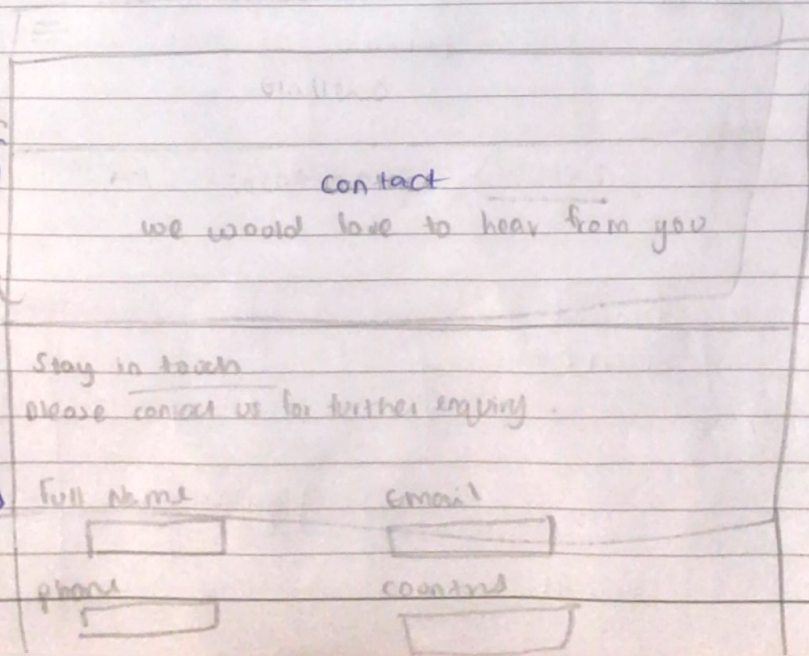 contact
we woold love to hear from you
Stay in touch
please contact us for further enquiry.
Full Name Email
phone